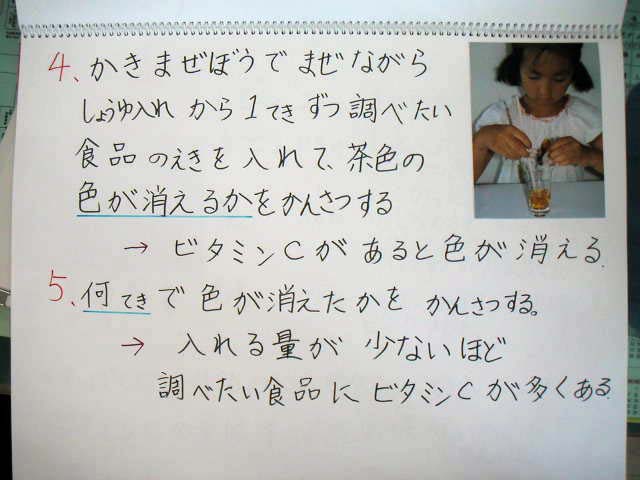 4、かきまぜぼうでまぜながら
しょうゆ入れから1てきずつ調べたい
食品のえきを入れて、茶色の
色が消えるかをかんさつする
→ ビタミンCがあると色が消える.
5、何てきで色が消えたかをかんさつする。
→ 入れる量が少ないほど
調べたい食品にビタミンCが多くある.